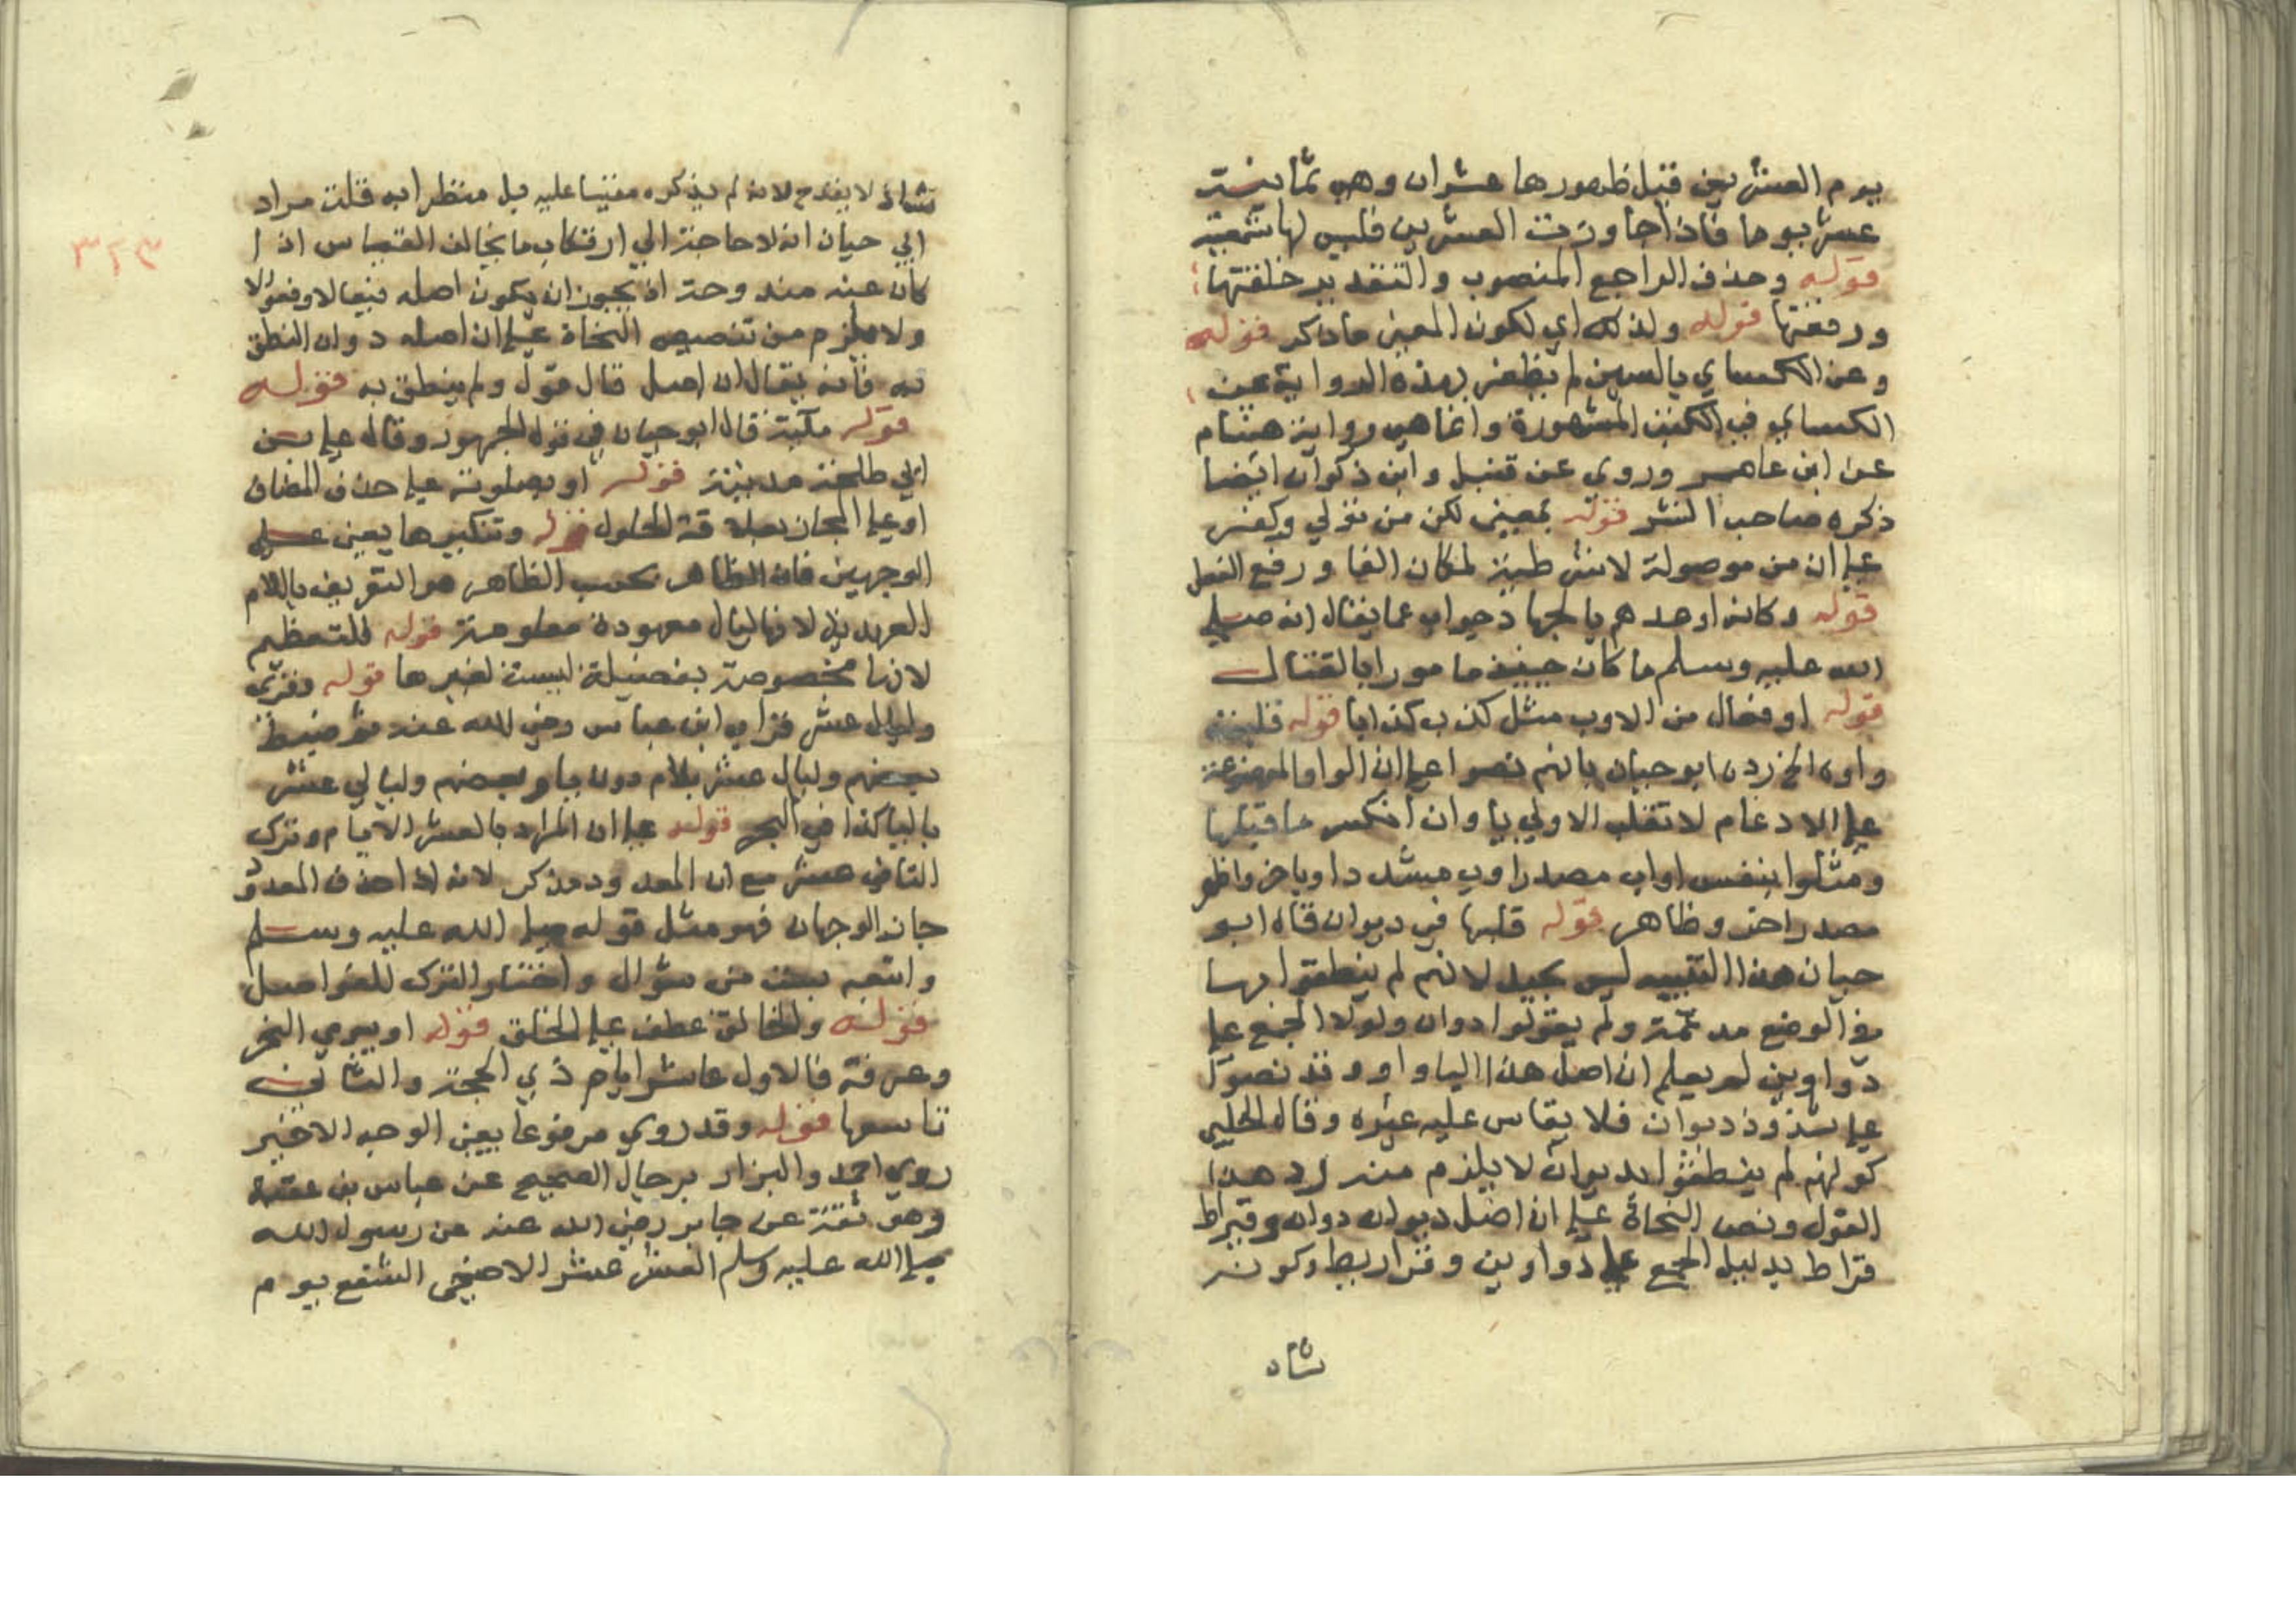 يوم العشرين قبل ظهورها عشران وهي ثمانية
عشر يوما فاذا جاوزت العشرين فليس لها تسمية
قوله وحذف الراجع المنصوب والتقدير خلقتها
ورفعتها قوله ولذلك اي لكون المعنى ما ذكر قوله
وعن الكسائي بالسين لم نظفر بهذه الرواية عن
الكسائي في الكتب المشهورة وانما هي رواية هشام
عن ابن عامر وروى عن قنبل وابن ذكوان ايضا
ذكره صاحب النشر قوله بمعنى لكن من تولي وكفر
علي ان من موصولة لا شرطية لمكان الفا ورفع الفعل
قوله وكانه اوعدهم بالجهاد جواب عما يقال انه صلى
الله عليه وسلم ما كان حينئذ مامورا بالقتال
قوله او فعال من الاوب مثل كذب كذابا قوله قلبت
واوه الخ رده ابو حيان بانهم نصوا علي ان الواو الموضوعة
علي الادغام لا تقلب الاولي يا وان انكسر ما قبلها
ومثلوا بنفس اواب مصدر اوب مشددا وباخرواط
مصدر اخر وظاهر قوله قلبها في ديوان قال ابو
حيان هذا التشبيه ليس بجيد لانهم لم ينطقوا بها
في الوضع مدغمة ولم يقولوا دوان ولولا الجمع علي
دواوين لم يعلم ان اصل هذا اليا واو وقد نصوا
علي شذوذ ديوان فلا يقاس عليه غيره وقال الحلبي
كونهم لم ينطقوا بديوان لا يلزم منه رد هذا
القول ونص النحاة علي ان اصل ديوان دوان وقيراط
قراط بدليل الجمع علي دواوين وقراريط وكونه
شاذ
شاذا لا يقدح لانه لم يذكره مقيسا عليه بل منظرا به قلت مراد
ابي حيان انه لا حاجة الي ارتكاب ما يخالف القياس اذا
كان عنه مندوحة اذ يجوز ان يكون اصله فيعالا وفعوالا
ولا يلزم من تنصيص النحاة علي ان اصله دوان النطق
به فانه يقال ان اصل قال قول ولم ينطق به قوله
قوله مكية قال ابو حيان في قول الجمهور وقال علي بن
ابي طلحة مدنية قوله او بصلوته علي حذف المضاف
او علي المجاز بعلاقة الحلول قوله وتنكيرها يعني علي
الوجهين فان الظاهر بحسب الظاهر هو التعريف باللام
العهدية لانها ليال معهودة معلومة قوله للتعظيم
لانها مخصوصة بفضيلة ليست لغيرها قوله وقرئ
وليال عشر قرا به ابن عباس رضي الله عنه فضبط
بعضهم وليال عشر بلام دون يا وبعضهم وليالي عشر
باليا كذا في البحر قوله علي ان المراد بالعشر الايام وترك
التا في عشر مع ان المعدود مذكر لانه اذا حذف المعدود
جاز الوجهان فهو مثل قوله صلى الله عليه وسلم
واتبعه بست من شوال واختار الترك للفواصل
قوله والخالق عطف علي الخلق قوله او بيومي النحر
وعرفة فالاول عاشر ايام ذي الحجة والثاني
تاسعها قوله وقد روي مرفوعا يعني الوجه الاخير
روي احمد والبزار برجال الصحيح عن عباس بن عقبة
وهو ثقة عن جابر رضي الله عنه عن رسول الله
صلى الله عليه وسلم العشر عشر الاضحى الشفع يوم
٣٢٣